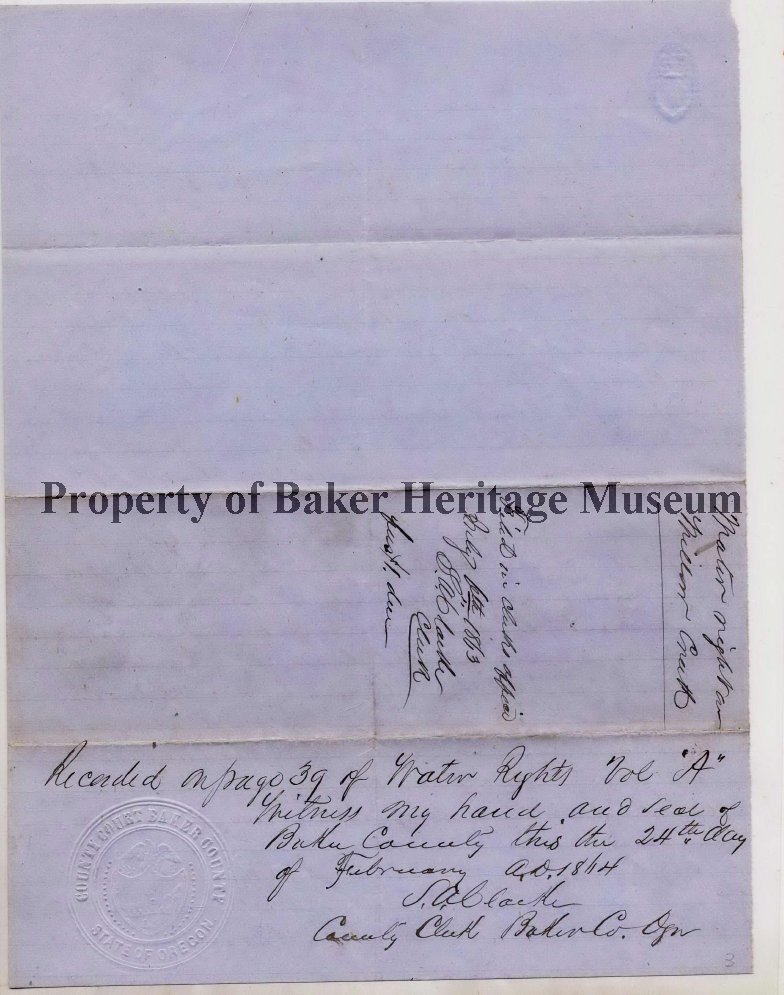 Property of Baker Heritage Museum
Water right on
Willow Creek
Filed in Clerks office
July 6th 1863
S. A. Clarke
Clerk
Recorded on page 39 of Water Rights Vol "A"
Witness my hand and seal of
Baker County this the 24th day
of February A.D. 1864
S. A. Clarke
County Clerk Baker Co. Ogn
COUNTY COURT BAKER COUNTY
STATE OF OREGON
3